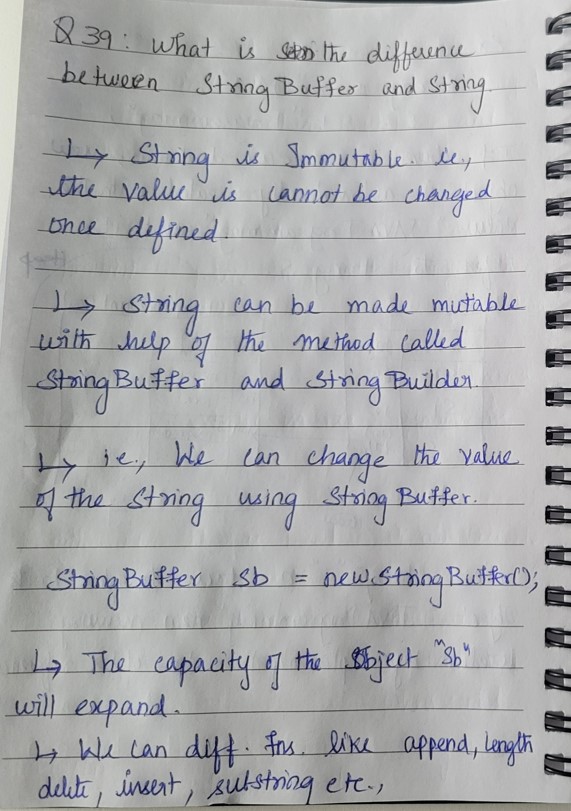 Q 39: What is the difference
between StringBuffer and String.
↳ String is Immutable. ie.,
the value is cannot be changed
once defined.
↳ String can be made mutable
with help of the method called
StringBuffer and StringBuilder.
↳ ie., We can change the value
of the String using StringBuffer.
StringBuffer sb = new StringBuffer();
↳ The capacity of the Object "Sb"
will expand.
↳ We can diff. fns. like append, length
delete, insert, substring etc.,